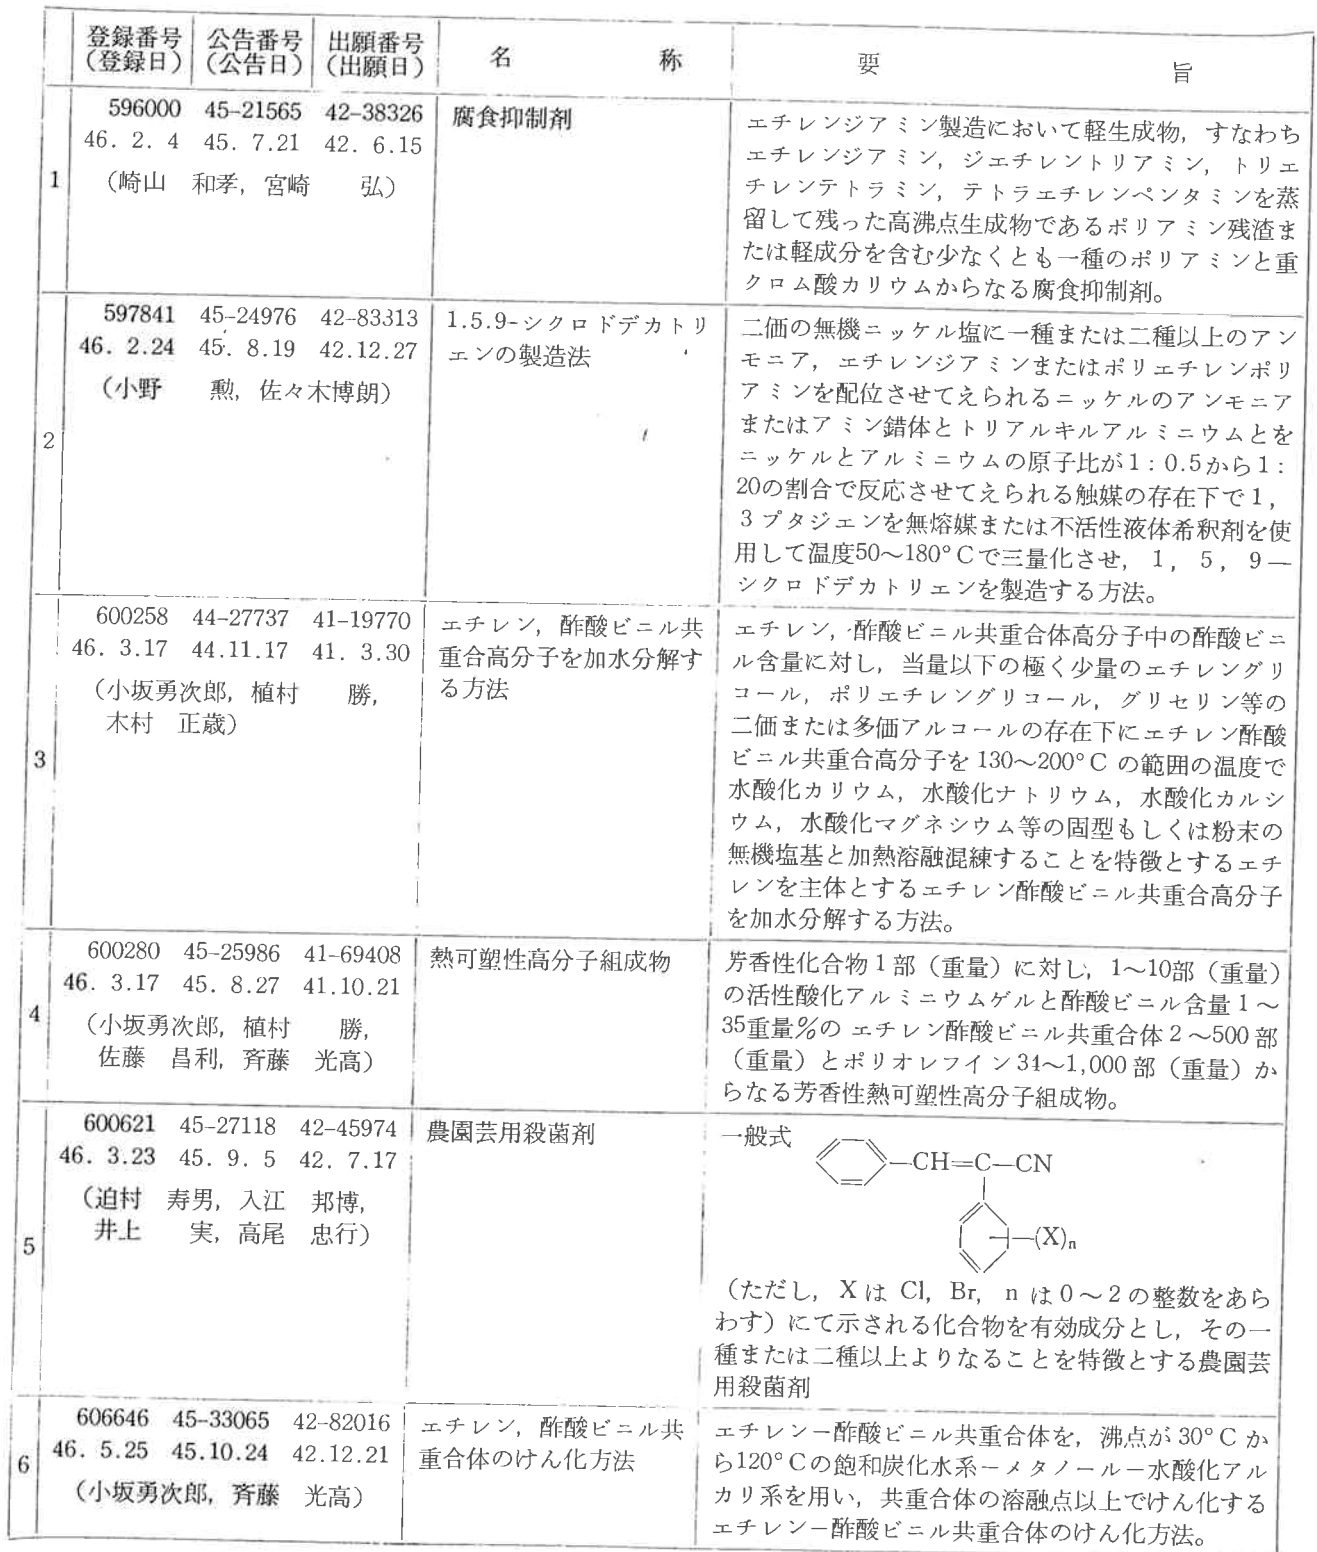 登録番号 公告番号 出願番号 名 称 要 旨
（登録日） （公告日） （出願日）
1
596000 45-21565 42-38326
46. 2. 4 45. 7.21 42. 6.15
（崎山 和孝，宮崎 弘）
腐食抑制剤
エチレンジアミン製造において軽生成物，すなわち
エチレンジアミン，ジエチレントリアミン，トリエ
チレンテトラミン，テトラエチレンペンタミンを蒸
留して残った高沸点生成物であるポリアミン残渣ま
たは軽成分を含む少なくとも一種のポリアミンと重
クロム酸カリウムからなる腐食抑制剤。
2
597841 45-24976 42-83313
46. 2.24 45. 8.19 42.12.27
（小野 勲，佐々木博朗）
1.5.9-シクロドデカトリ
エンの製造法
二価の無機ニッケル塩に一種または二種以上のアン
モニア，エチレンジアミンまたはポリエチレンポリ
アミンを配位させてえられるニッケルのアンモニア
またはアミン錯体とトリアルキルアルミニウムとを
ニッケルとアルミニウムの原子比が1：0.5から1：
20の割合で反応させてえられる触媒の存在下で1，
3ブタジエンを無熔媒または不活性液体希釈剤を使
用して温度50～180°Cで三量化させ，1，5，9—
シクロドデカトリエンを製造する方法。
3
600258 44-27737 41-19770
46. 3.17 44.11.17 41. 3.30
（小坂勇次郎，植村 勝，
木村 正歳）
エチレン，酢酸ビニル共
重合高分子を加水分解す
る方法
エチレン，酢酸ビニル共重合体高分子中の酢酸ビニ
ル含量に対し，当量以下の極く少量のエチレングリ
コール，ポリエチレングリコール，グリセリン等の
二価または多価アルコールの存在下にエチレン酢酸
ビニル共重合高分子を130～200°Cの範囲の温度で
水酸化カリウム，水酸化ナトリウム，水酸化カルシ
ウム，水酸化マグネシウム等の固型もしくは粉末の
無機塩基と加熱溶融混練することを特徴とするエチ
レンを主体とするエチレン酢酸ビニル共重合高分子
を加水分解する方法。
4
600280 45-25986 41-69408
46. 3.17 45. 8.27 41.10.21
（小坂勇次郎，植村 勝，
佐藤 昌利，斉藤 光高）
熱可塑性高分子組成物
芳香性化合物1部（重量）に対し，1～10部（重量）
の活性酸化アルミニウムゲルと酢酸ビニル含量1～
35重量％の エチレン酢酸ビニル共重合体2～500部
（重量）とポリオレフイン34～1,000部（重量）か
らなる芳香性熱可塑性高分子組成物。
5
600621 45-27118 42-45974
46. 3.23 45. 9. 5 42. 7.17
（迫村 寿男，入江 邦博，
井上 実，高尾 忠行）
農園芸用殺菌剤
一般式
—CH=C—CN
—(X)n
（ただし，Xは Cl, Br, nは0～2の整数をあら
わす）にて示される化合物を有効成分とし，その一
種または二種以上よりなることを特徴とする農園芸
用殺菌剤
6
606646 45-33065 42-82016
46. 5.25 45.10.24 42.12.21
（小坂勇次郎，斉藤 光高）
エチレン，酢酸ビニル共
重合体のけん化方法
エチレンー酢酸ビニル共重合体を，沸点が30°Cか
ら120°Cの飽和炭化水系－メタノール－水酸化アル
カリ系を用い，共重合体の溶融点以上でけん化する
エチレンー酢酸ビニル共重合体のけん化方法。